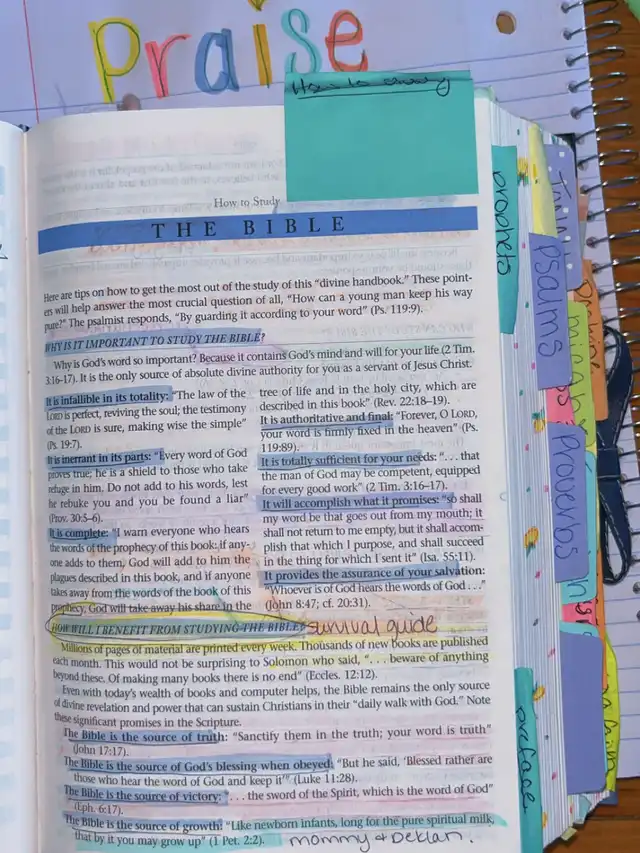 Praise
How to
How to Study
THE BIBLE
Here are tips on how to get the most out of the study of this “divine handbook.” These point-
ers will help answer the most crucial question of all, “How can a young man keep his way
pure?” The psalmist responds, “By guarding it according to your word” (Ps. 119:9).
WHY IS IT IMPORTANT TO STUDY THE BIBLE?
Why is God's word so important? Because it contains God's mind and will for your life (2 Tim.
3:16-17). It is the only source of absolute divine authority for you as a servant of Jesus Christ.
It is infallible in its totality: “The law of the
LORD is perfect, reviving the soul; the testimony
of the LORD is sure, making wise the simple”
(Ps. 19:7).
It is inerrant in its parts: “Every word of God
proves true; he is a shield to those who take
refuge in him. Do not add to his words, lest
he rebuke you and you be found a liar”
(Prov. 30:5-6).
It is complete: “I warn everyone who hears
the words of the prophecy of this book: if any-
one adds to them, God will add to him the
plagues described in this book, and if anyone
takes away from the words of the book of this
prophecy, God will take away his share in the
tree of life and in the holy city, which are
described in this book” (Rev. 22:18-19).
It is authoritative and final: “Forever, O LORD,
your word is firmly fixed in the heaven” (Ps.
119:89).
It is totally sufficient for your needs: “. . . that
the man of God may be competent, equipped
for every good work” (2 Tim. 3:16-17).
It will accomplish what it promises: “so shall
my word be that goes out from my mouth; it
shall not return to me empty, but it shall accom-
plish that which I purpose, and shall succeed
in the thing for which I sent it” (Isa. 55:11).
It provides the assurance of your salvation:
“Whoever is of God hears the words of God . . .”
(John 8:47; cf. 20:31).
HOW WILL I BENEFIT FROM STUDYING THE BIBLE? survival guide
Millions of pages of material are printed every week. Thousands of new books are published
each month. This would not be surprising to Solomon who said, “. . . beware of anything
beyond these. Of making many books there is no end” (Eccles. 12:12).
Even with today's wealth of books and computer helps, the Bible remains the only source
of divine revelation and power that can sustain Christians in their “daily walk with God.” Note
these significant promises in the Scripture.
The Bible is the source of truth: “Sanctify them in the truth; your word is truth”
(John 17:17).
The Bible is the source of God's blessing when obeyed: “But he said, ‘Blessed rather are
those who hear the word of God and keep it’” (Luke 11:28).
The Bible is the source of victory: “. . . the sword of the Spirit, which is the word of God”
(Eph. 6:17).
The Bible is the source of growth: “Like newborn infants, long for the pure spiritual milk,
that by it you may grow up” (1 Pet. 2:2). mommy + Deklan.
prophets
psalms
Proverbs
preface